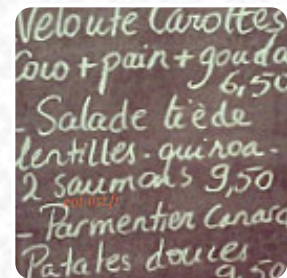 Velouté Carottes
Coco + pain + gouda
6,50
- Salade tiède
lentilles - quinoa -
2 saumons 9,50
- Parmentier Canard
Patates douces
9,50